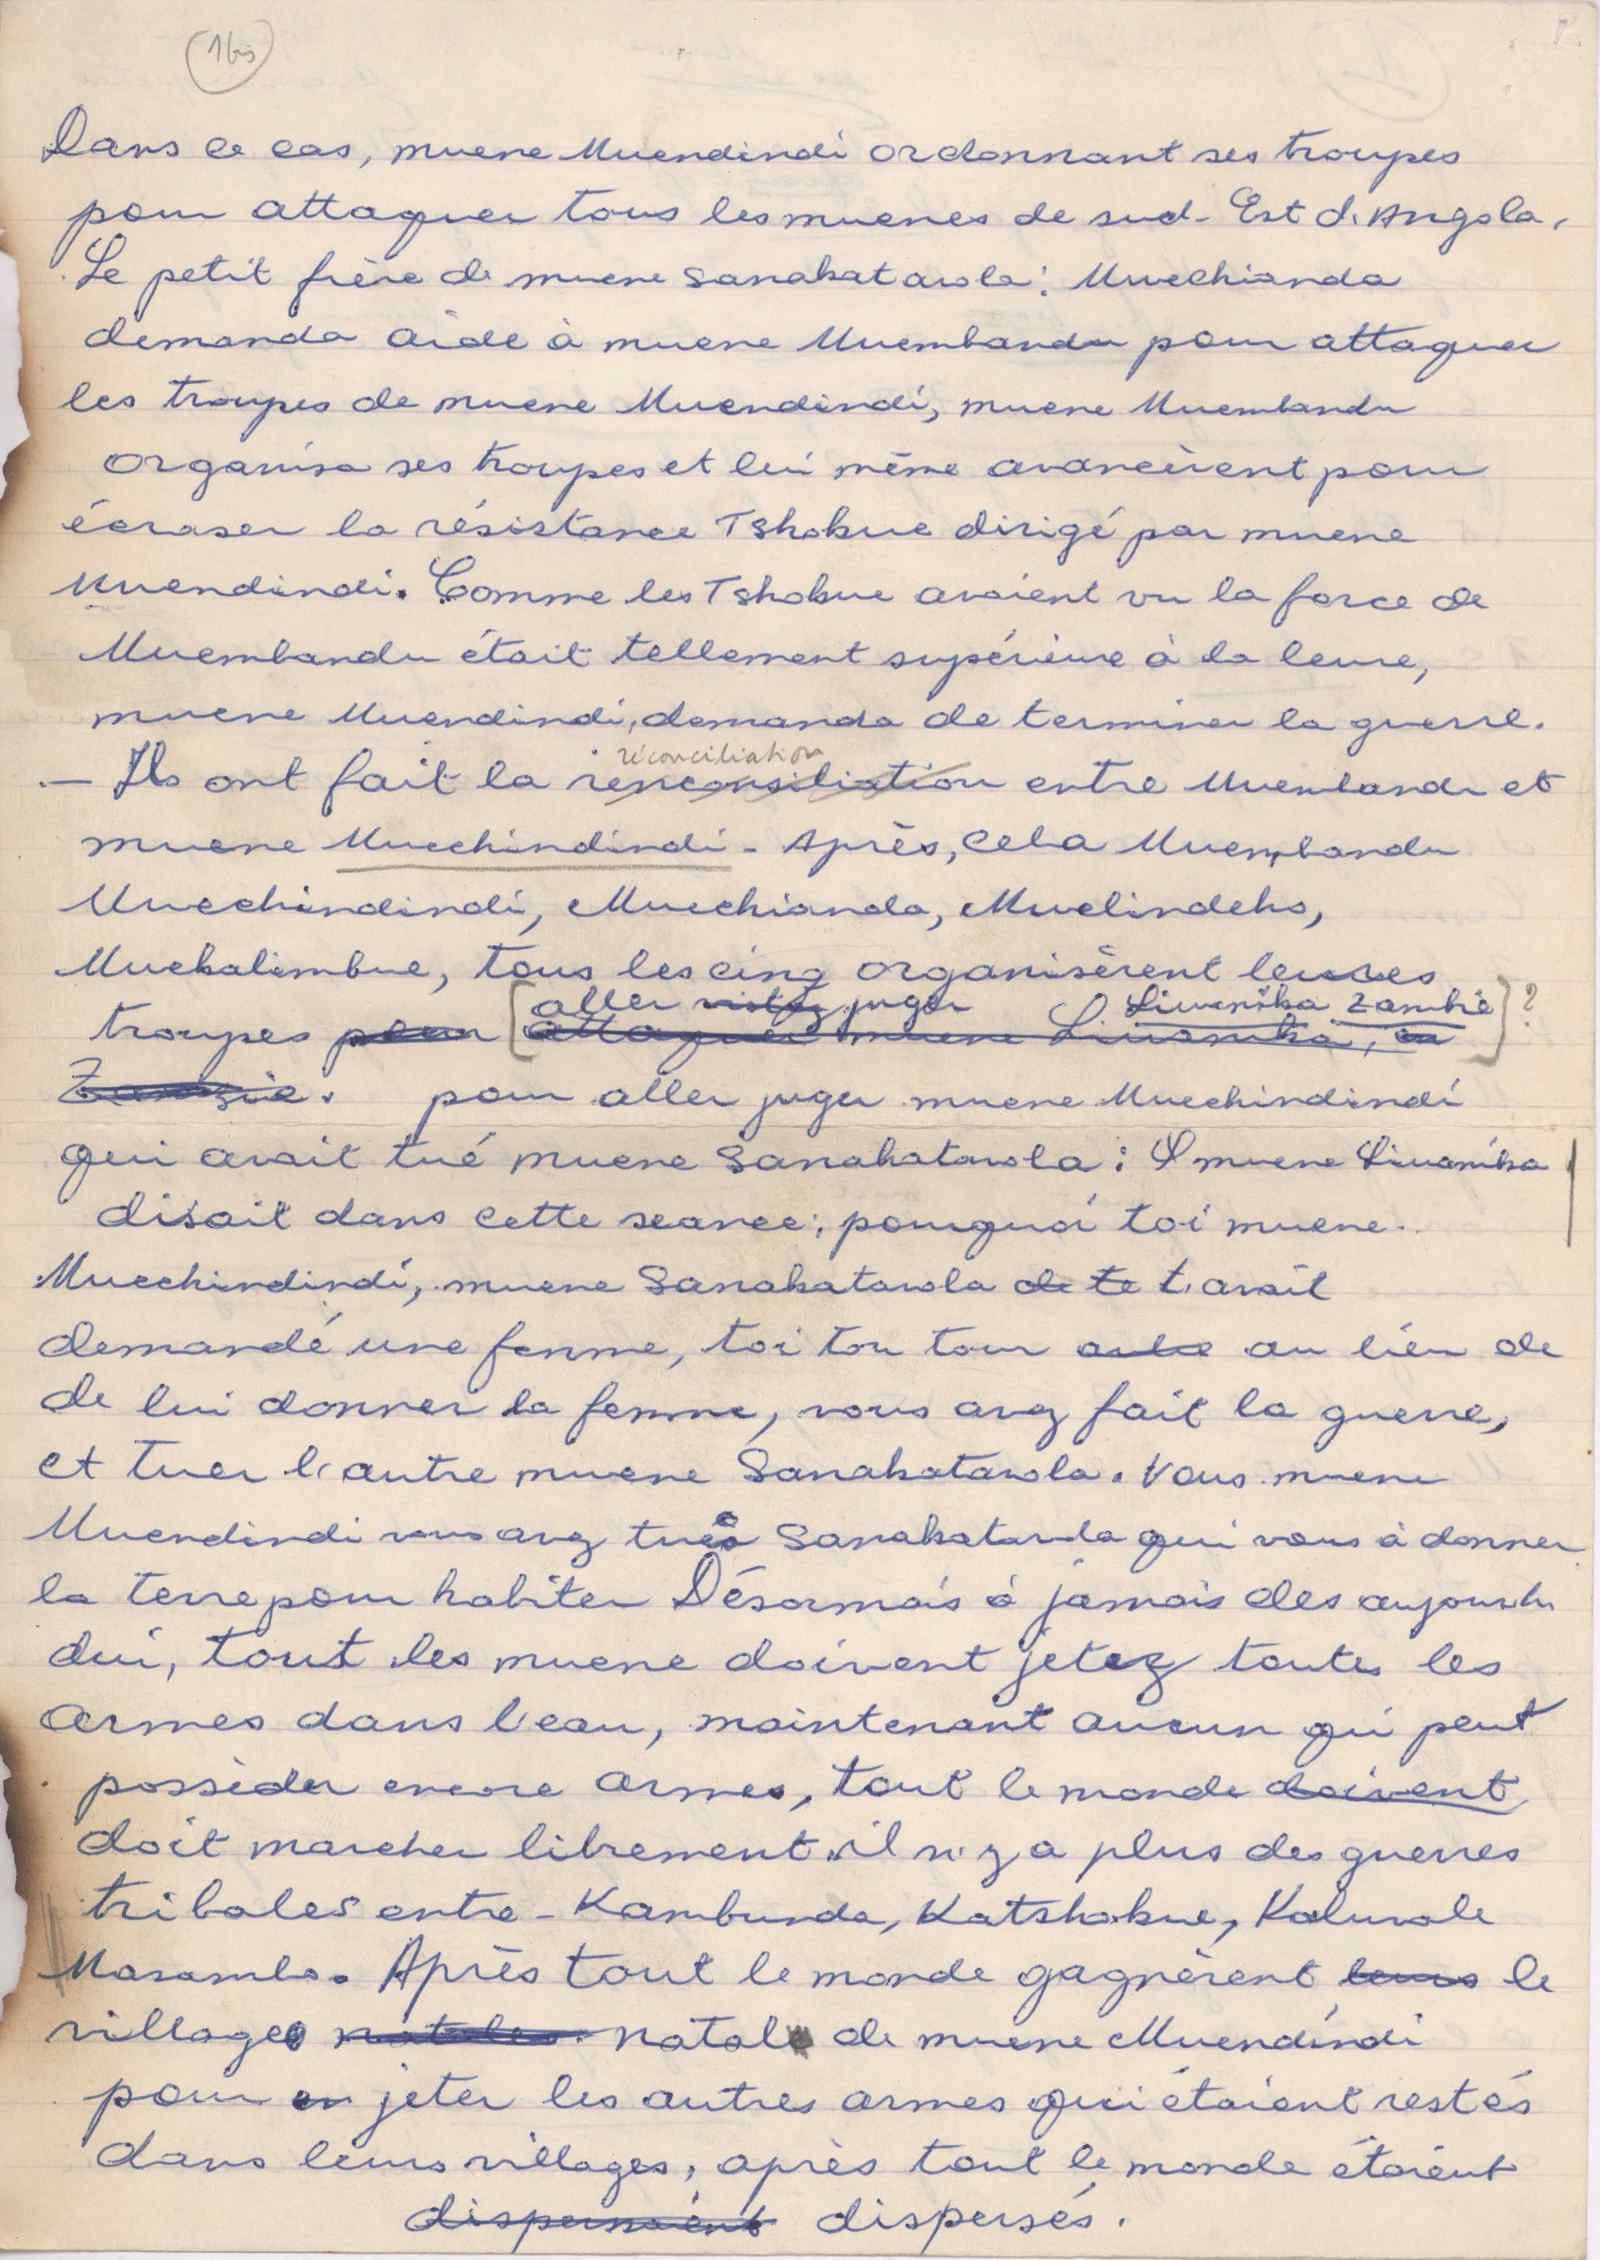 1 bis
Dans ce cas, muene Muendindi ordonnant ses troupes
pour attaquer tous les muenes de sud-Est d'Angola.
Le petit frère de muene Sanakatawla: Muechianda
demanda aide à muene Muembandu pour attaquer
les troupes de muene Muendindi, muene Muembandu
organisa ses troupes et lui même avancèrent pour
écraser la résistance Tshokue dirigé par muene
Muendindi. Comme les Tshokue avaient vu la force de
Muembandu était tellement supérieure à la leure,
muene Muendindi, demanda de terminer la guerre.
réconciliation
- Ils ont fait la renconsiliation entre Muembandu et
muene Muechindindi - Après, cela Muembandu
Muechindindi, Muechianda, Muelindeho,
Muekalimbue, tous les cinq organisèrent leurs
aller juger Liuanika Zambie ?
troupes pour [attaquer muene Liuanika, en]
Zambie. pour aller juger muene Muechindindi
qui avait tué muene Sanakatawla: muene Liuanika
disait dans cette seance: pourquoi toi muene
Muechindindi, muene Sanakatawla de te t'avait
demandé une femme, toi ton tour au lieu de
de lui donner la femme, vous avez fait la guerre,
et tuer l'autre muene Sanakatawla. Vous muene
Muendindi vous avez tué Sanakatawla qui vous à donner
la terre pour habiter Désormais à jamais des aujourh
dui, tout les muene doivent jetez toutes les
armes dans l'eau, maintenant aucun qui peut
possèder encore armes, tout le monde doivent
doit marcher librement il n'y a plus des guerres
tribales entre - Kambunda, Katshokue, Kaluvale
Masambo. Après tout le monde gagnèrent leurs le
village natales natale de muene Muendindi
pour en jeter les autres armes qui étaient restés
dans leurs villages, après tout le monde étaient
dispersaient dispersés.